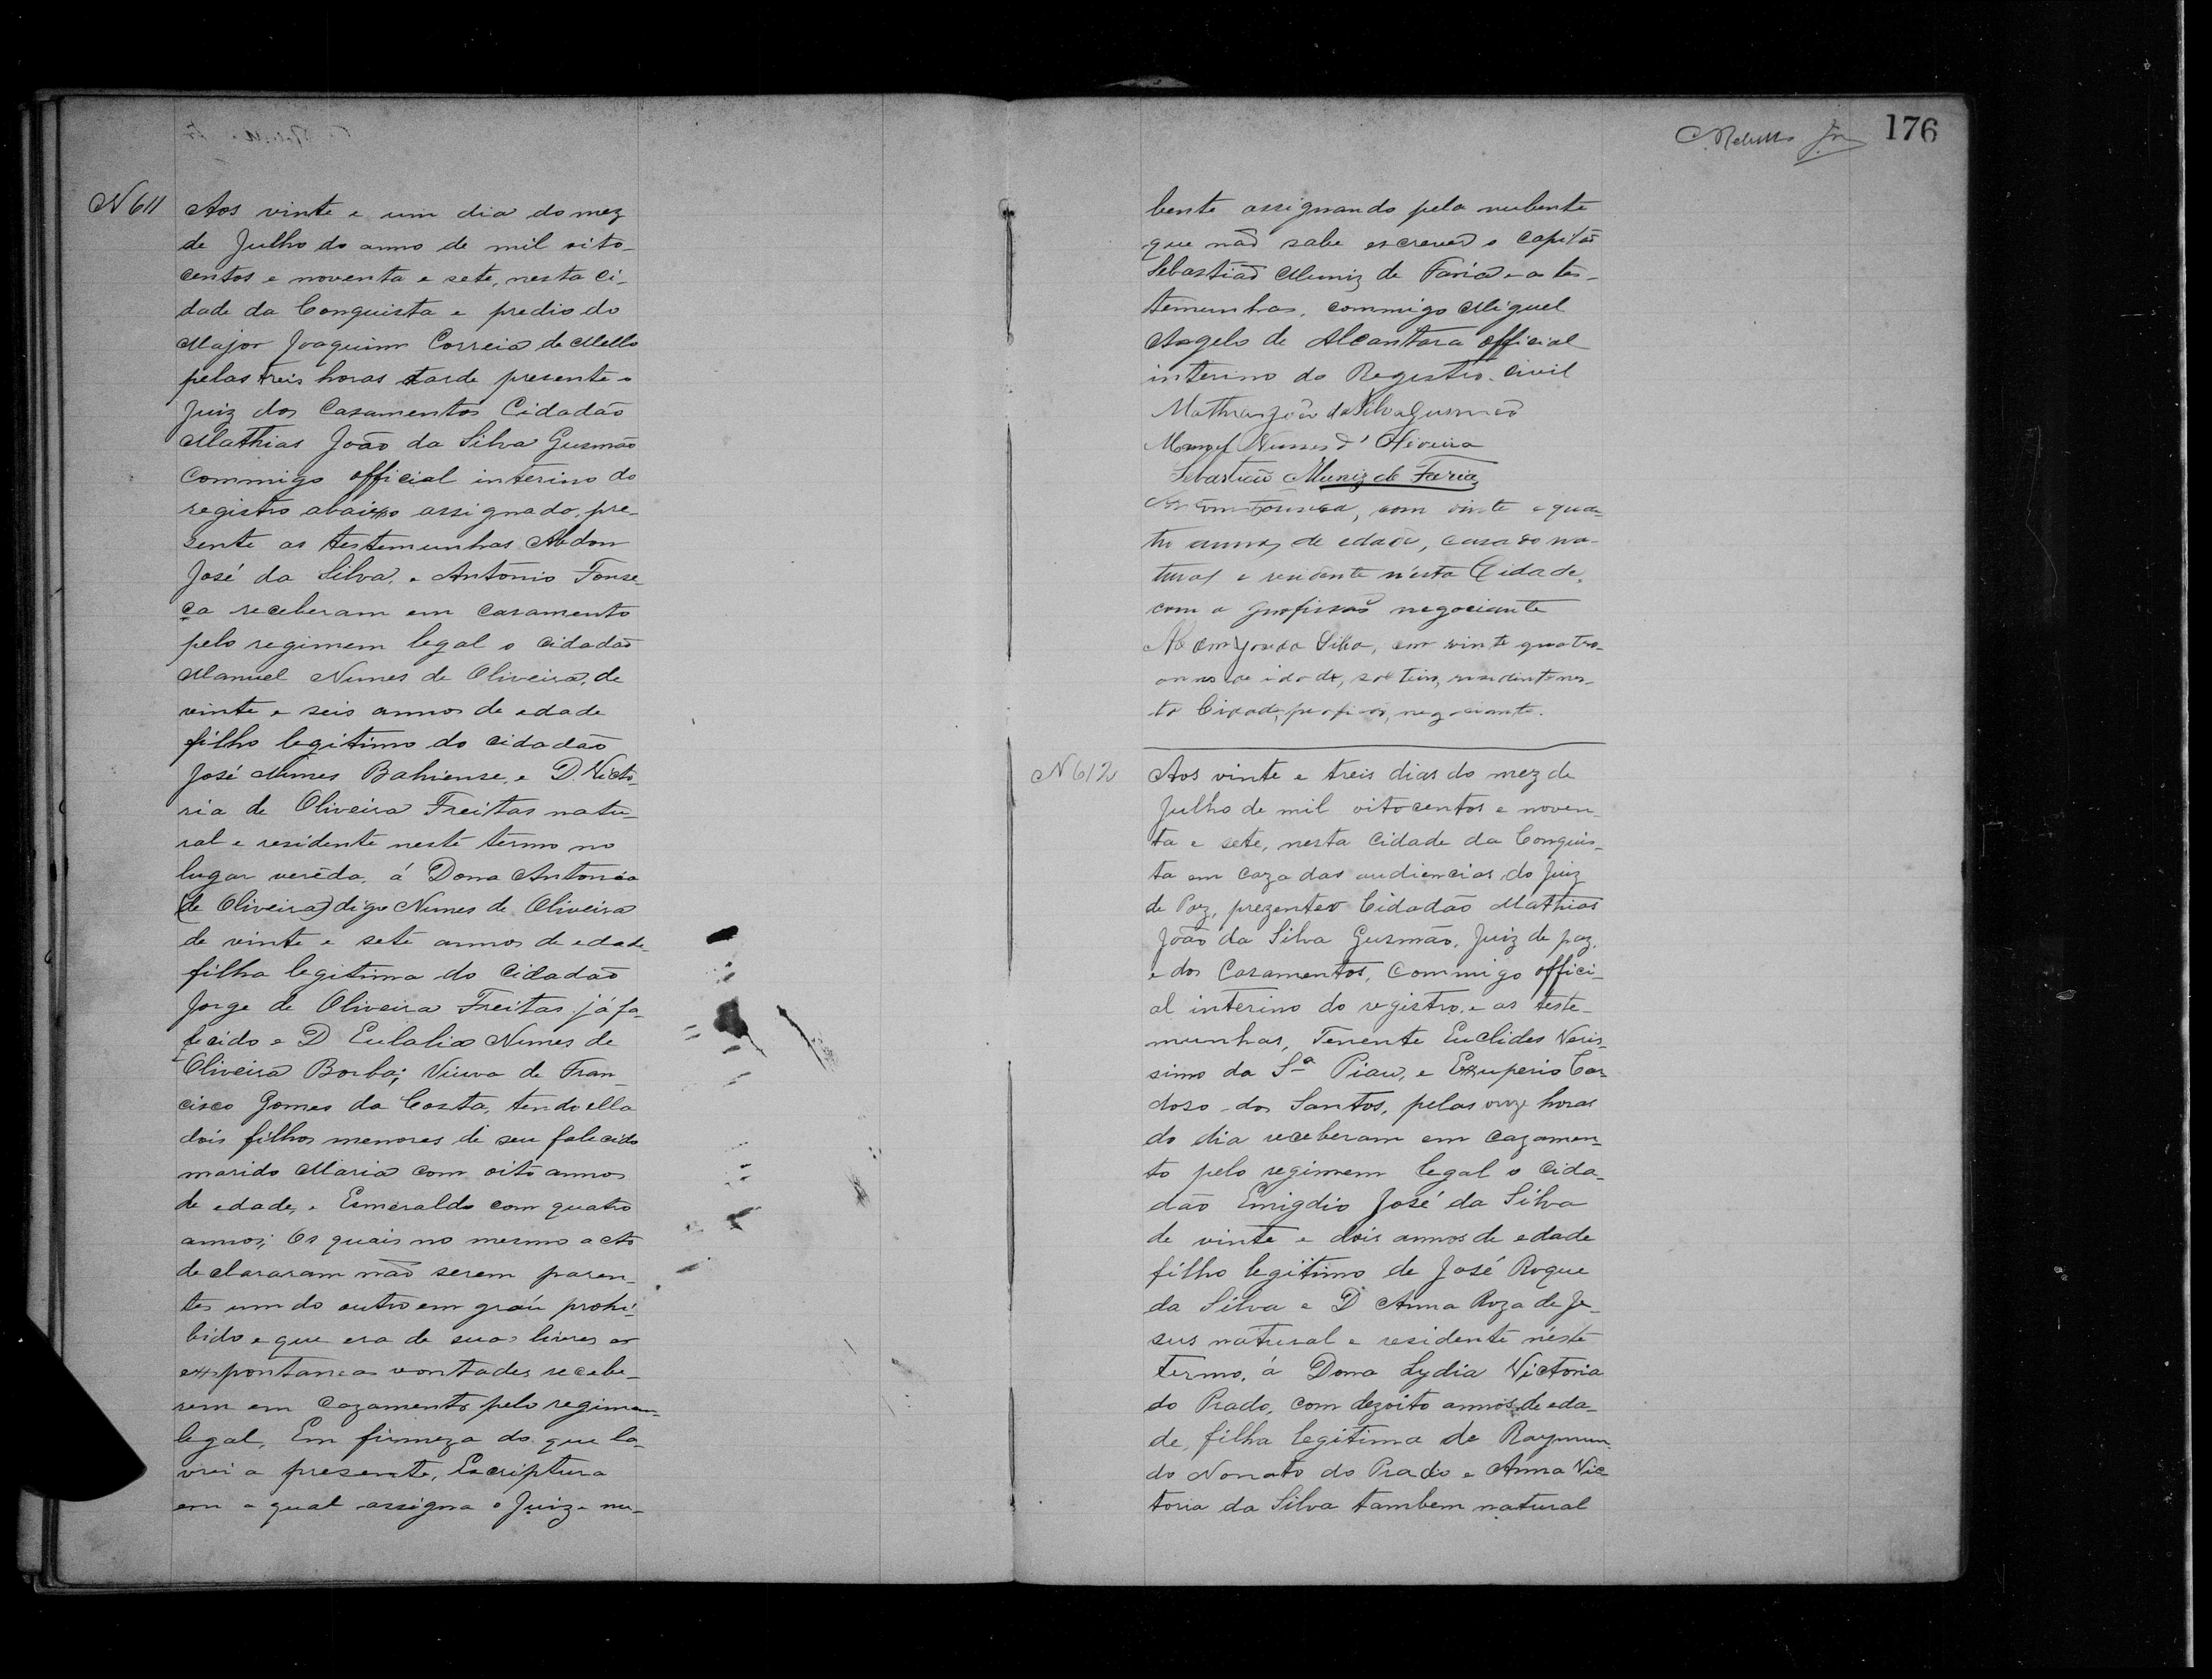 N 611
Aos vinte e um dia do mez
de Julho do anno de mil oito-
centos e noventa e sete, nesta ci-
dade da Conquista e predio do
Major Joaquim Correia de Mello
pelas treis horas tarde presente o
Juiz dos Casamentos Cidadão
Mathias João da Silva Gusmão
commigo official interino do
registro abaixo assignado, pre-
sente as testemunhas Abdon
José da Silva, e Antonio Fonse-
ca receberam em casamento
pelo regimem legal o cidadão
Manuel Nunes de Oliveira, de
vinte e seis annos de edade
filho legitimo do cidadão
José Nunes Bahiense, e D. Victo-
ria de Oliveira Freitas natu-
ral e residente neste termo no
lugar verêda, á Dona Antonia
(de Oliveira) digo Nunes de Oliveira
de vinte e sete annos de edade
filha legitima do cidadão
Jorge de Oliveira Freitas já fa-
lecido e D Eulalia Nunes de
Oliveira Borba; Viuva de Fran-
cisco Gomes da Costa, tendo ella
dois filhos menores de seu falecido
marido Maria com oito annos
de edade, e Esmeraldo com quatro
annos; Os quais no mesmo acto
declararam não serem paren-
tes um do outro em gráu prohi-
bido e que era de suas livres as
expontaneas vontades recebe-
rem em cazamento pelo regimen
legal, Em firmeza do que la-
vrei a presente, Escriptura
em a qual assigna o Juiz e nu-
176
bente assignando pela nubente
que não sabe escrever o Capitão
Sebastião Muniz de Faria e as tes-
temunhas, commigo Miguel
Angelo de Alcantara official
interino do Registro Civil
Mathias João da Silva Gusmão
Manoel Nunes d' Oliveira
Sebastião Muniz de Faria
Fonseca, com vinte e qua-
tro annos de edade, casado na-
tural e residente n'esta Cidade,
com a profissão negociante
José da Silva, com vinte quatro
annos de idade, solteiro, residente nes-
ta Cidade, profissão, negociante.
N 612
Aos vinte e treis dias do mez de
Julho de mil oitocentos e noven-
ta e sete, nesta Cidade da Conquis-
ta em caza das audiencias do Juiz
de Paz, prezente o Cidadão Mathias
João da Silva Gusmão, Juiz de paz,
e dos Casamentos, Commigo offici-
al interino do registro, e as teste-
munhas, Tenente Euclides Veris-
simo da Sª Piau, e Exuperio Car-
doso dos Santos, pelas onze horas
do dia receberam em cazamen-
to pelo regimem legal o cida-
dão Emigdio José da Silva
de vinte e dois annos de edade
filho legitimo de José Roque
da Silva e D Anna Roza de Je-
sus natural e residente n'este
termo, á Dona Lydia Victoria
do Prado, com dezoito annos de eda-
de, filha legitima de Raymun-
do Nonato do Prado e Anna Vic-
toria da Silva tambem natural